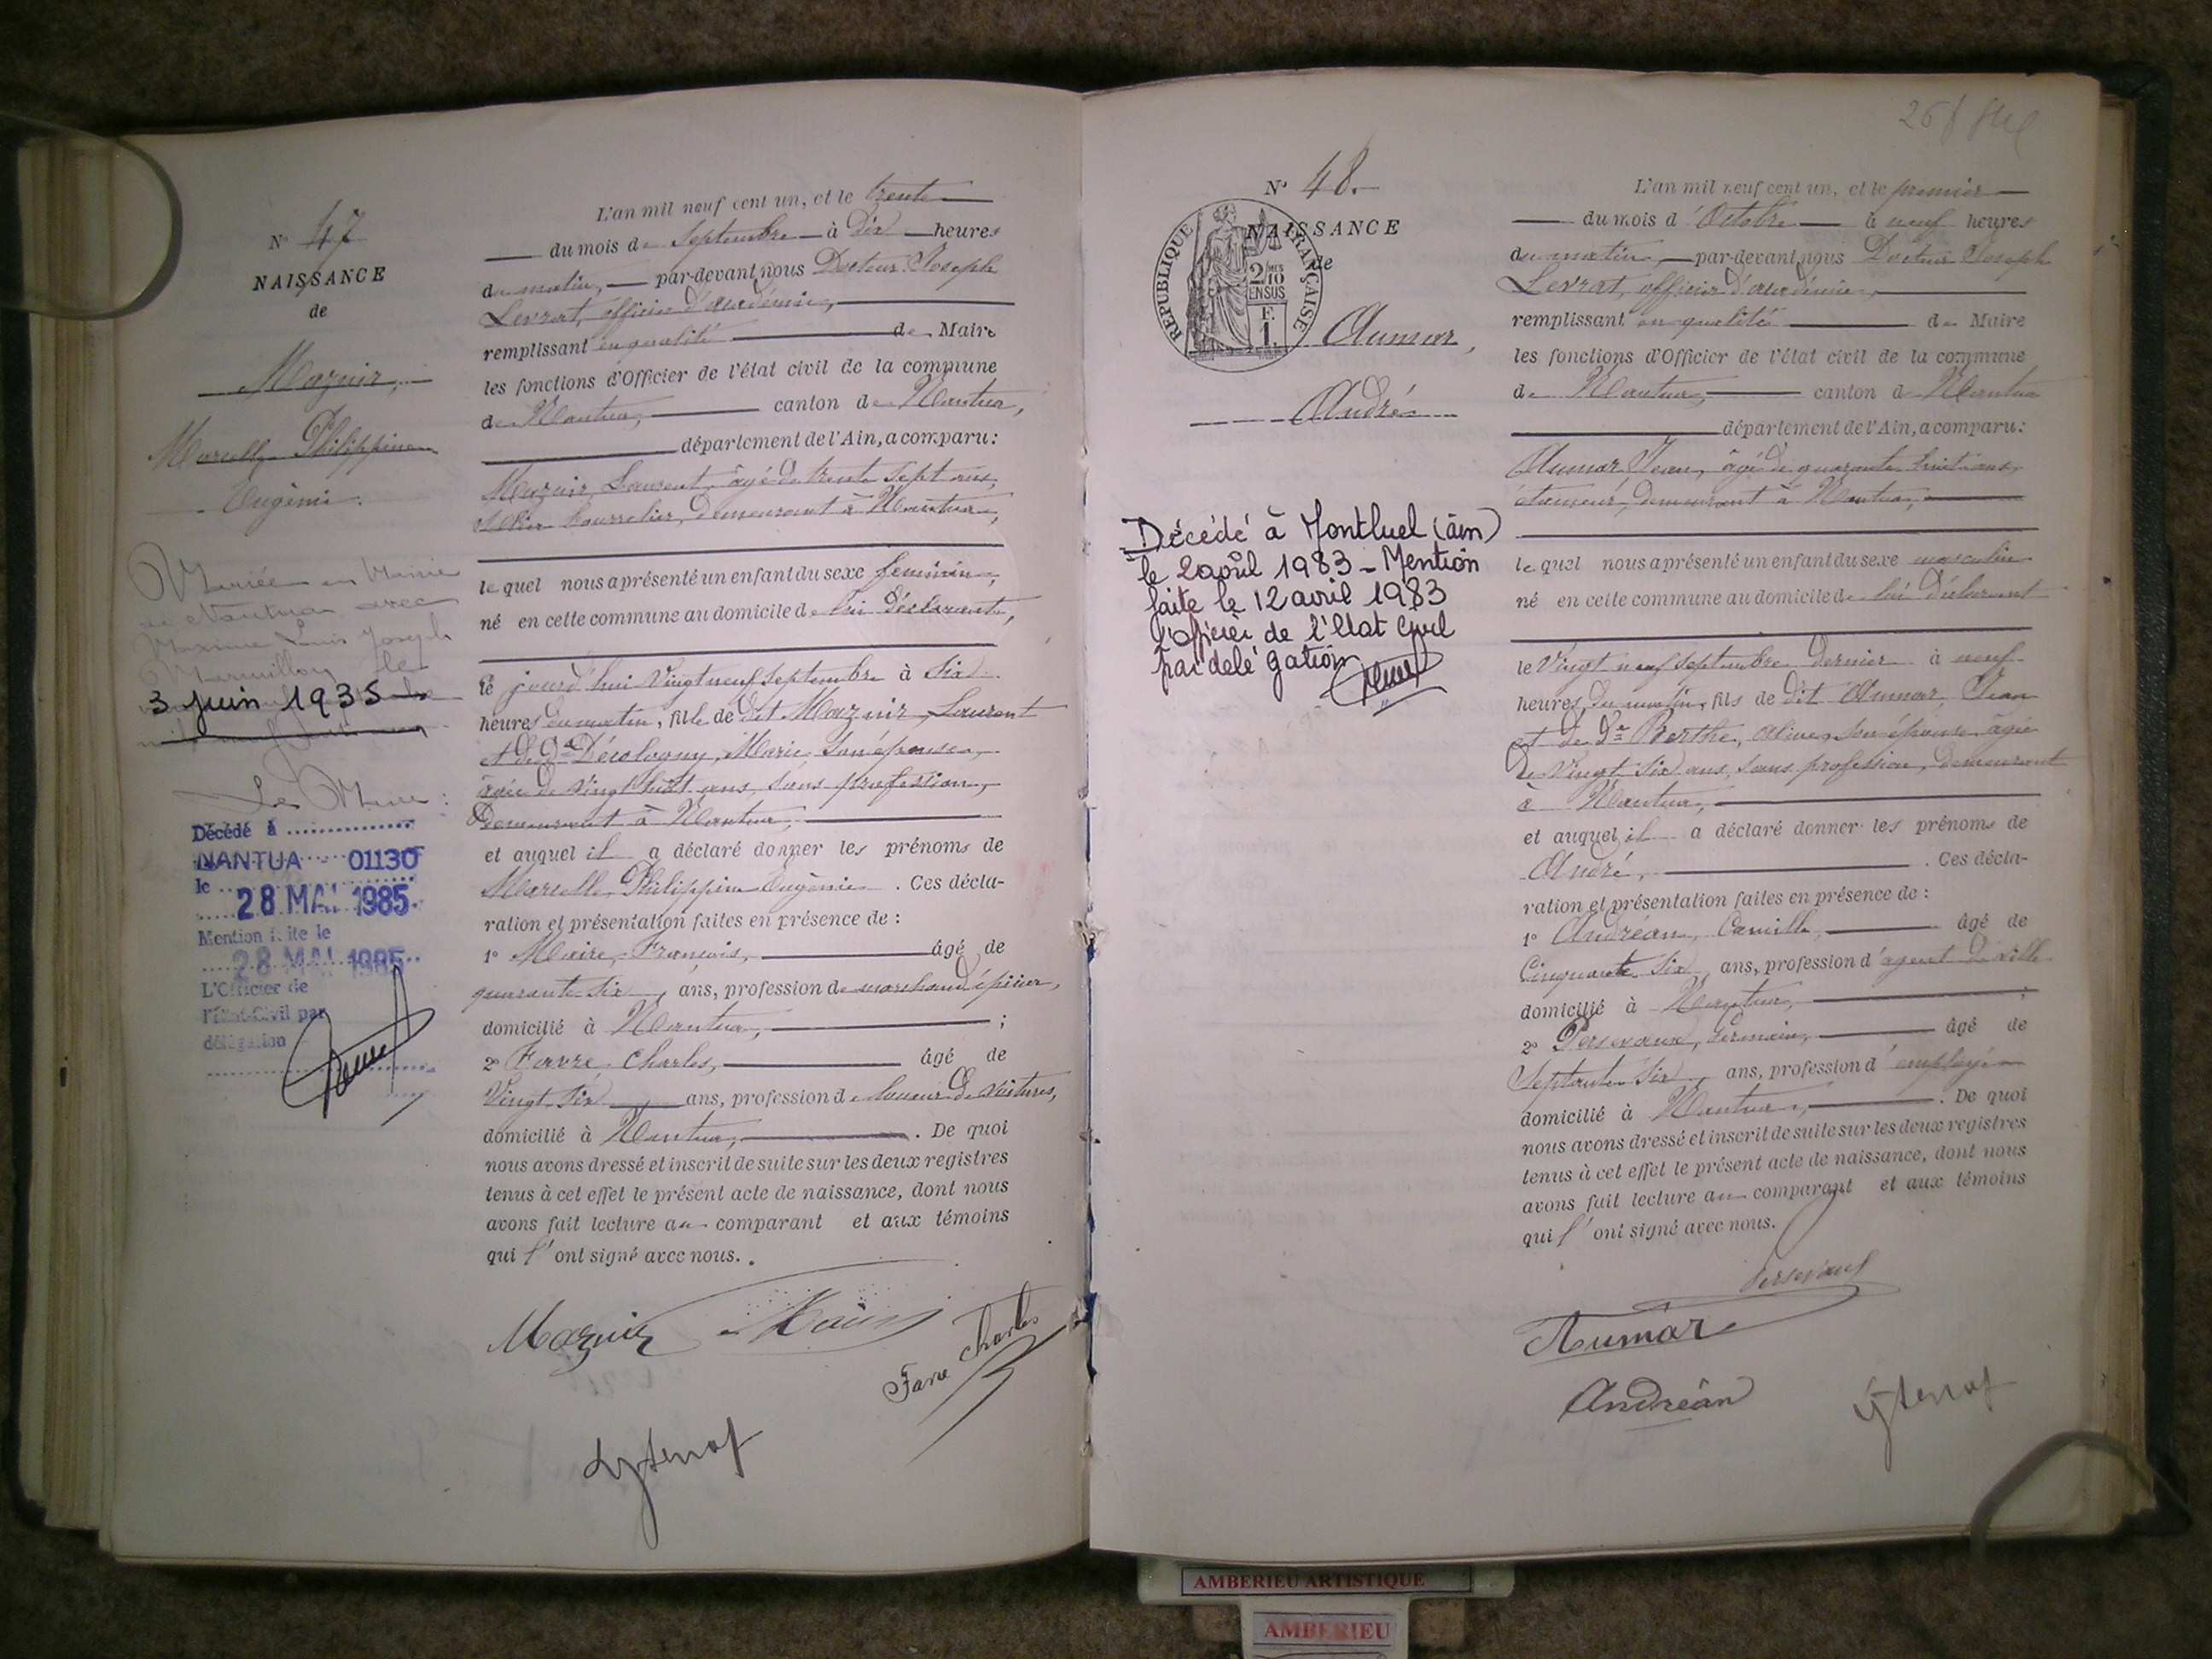 N° 47
NAISSANCE
de
Maznir,
Marcelle Philippine
Eugénie.
Mariée en Mairie
de Nantua avec
Maxime Louis Joseph
Marmillon le
3 juin 1935
Le Maire :
Décédé à
NANTUA 01130
le
28 MAI 1985
Mention faite le
28 MAI 1985
L'Officier de
l'Etat-Civil par
délégation
L'an mil neuf cent un, et le trente
du mois de Septembre à Dix heures
du matin, par-devant nous Docteur Joseph
Levrat, officier d'académie,
remplissant en qualité de Maire
les fonctions d'Officier de l'état civil de la commune
de Nantua, canton de Nantua,
département de l'Ain, a comparu :
Maznir, Laurent, âgé de trente sept ans,
sellier bourrelier, demeurant à Nantua,
le quel nous a présenté un enfant du sexe féminin,
né en cette commune au domicile de lui Déclarant,
le jourd'hui Vingt neuf Septembre à Six
heures du matin, fille de dit Maznir, Laurent
et de De Décologny, Marie, son épouse,
âgée de Vingt huit ans, sans profession,
Demeurant à Nantua,
et auquel il a déclaré donner les prénoms de
Marcelle Philippine Eugénie. Ces décla-
ration et présentation faites en présence de :
1° Maire, François, âgé de
quarante Six, ans, profession de marchand épicier,
domicilié à Nantua, ;
2° Favre, Charles, âgé de
Vingt Six ans, profession de loueur de voitures,
domicilié à Nantua, . De quoi
nous avons dressé et inscrit de suite sur les deux registres
tenus à cet effet le présent acte de naissance, dont nous
avons fait lecture au comparant et aux témoins
qui l'ont signé avec nous.
Maznir Maire
Favre Charles
N° 48.
NAISSANCE
de
REPUBLIQUE FRANÇAISE
2/10
EN SUS
F.
1.
Aumar,
André
Décédé à Montluel (ain)
le 2 août 1983 - Mention
faite le 12 avril 1983
l'officier de l'Etat Civil
par délégation
L'an mil neuf cent un, et le premier
du mois d'Octobre à neuf heures
du matin, par-devant nous Docteur Joseph
Levrat, officier d'académie,
remplissant en qualité de Maire
les fonctions d'Officier de l'état civil de la commune
de Nantua, canton de Nantua
département de l'Ain, a comparu :
Aumar, Jean, âgé de quarante huit ans,
étameur, demeurant à Nantua,
le quel nous a présenté un enfant du sexe masculin
né en cette commune au domicile de lui Déclarant
le Vingt neuf Septembre dernier à neuf
heures du matin, fils de dit Aumar, Jean
et de De Berthe, son épouse, âgée
de Vingt Six ans, sans profession, demeurant
à Nantua,
et auquel il a déclaré donner les prénoms de
André, . Ces décla-
ration et présentation faites en présence de :
1° Andréan, Camille, âgé de
Cinquante Six, ans, profession d'agent de ville
domicilié à Nantua, ;
2° Persevaux, Germain, âgé de
Septante Six, ans, profession d'employé
domicilié à Nantua, . De quoi
nous avons dressé et inscrit de suite sur les deux registres
tenus à cet effet le présent acte de naissance, dont nous
avons fait lecture au comparant et aux témoins
qui l'ont signé avec nous.
Persevaux
Aumar
Andréan
AMBERIEU ARTISTIQUE
AMBERIEU